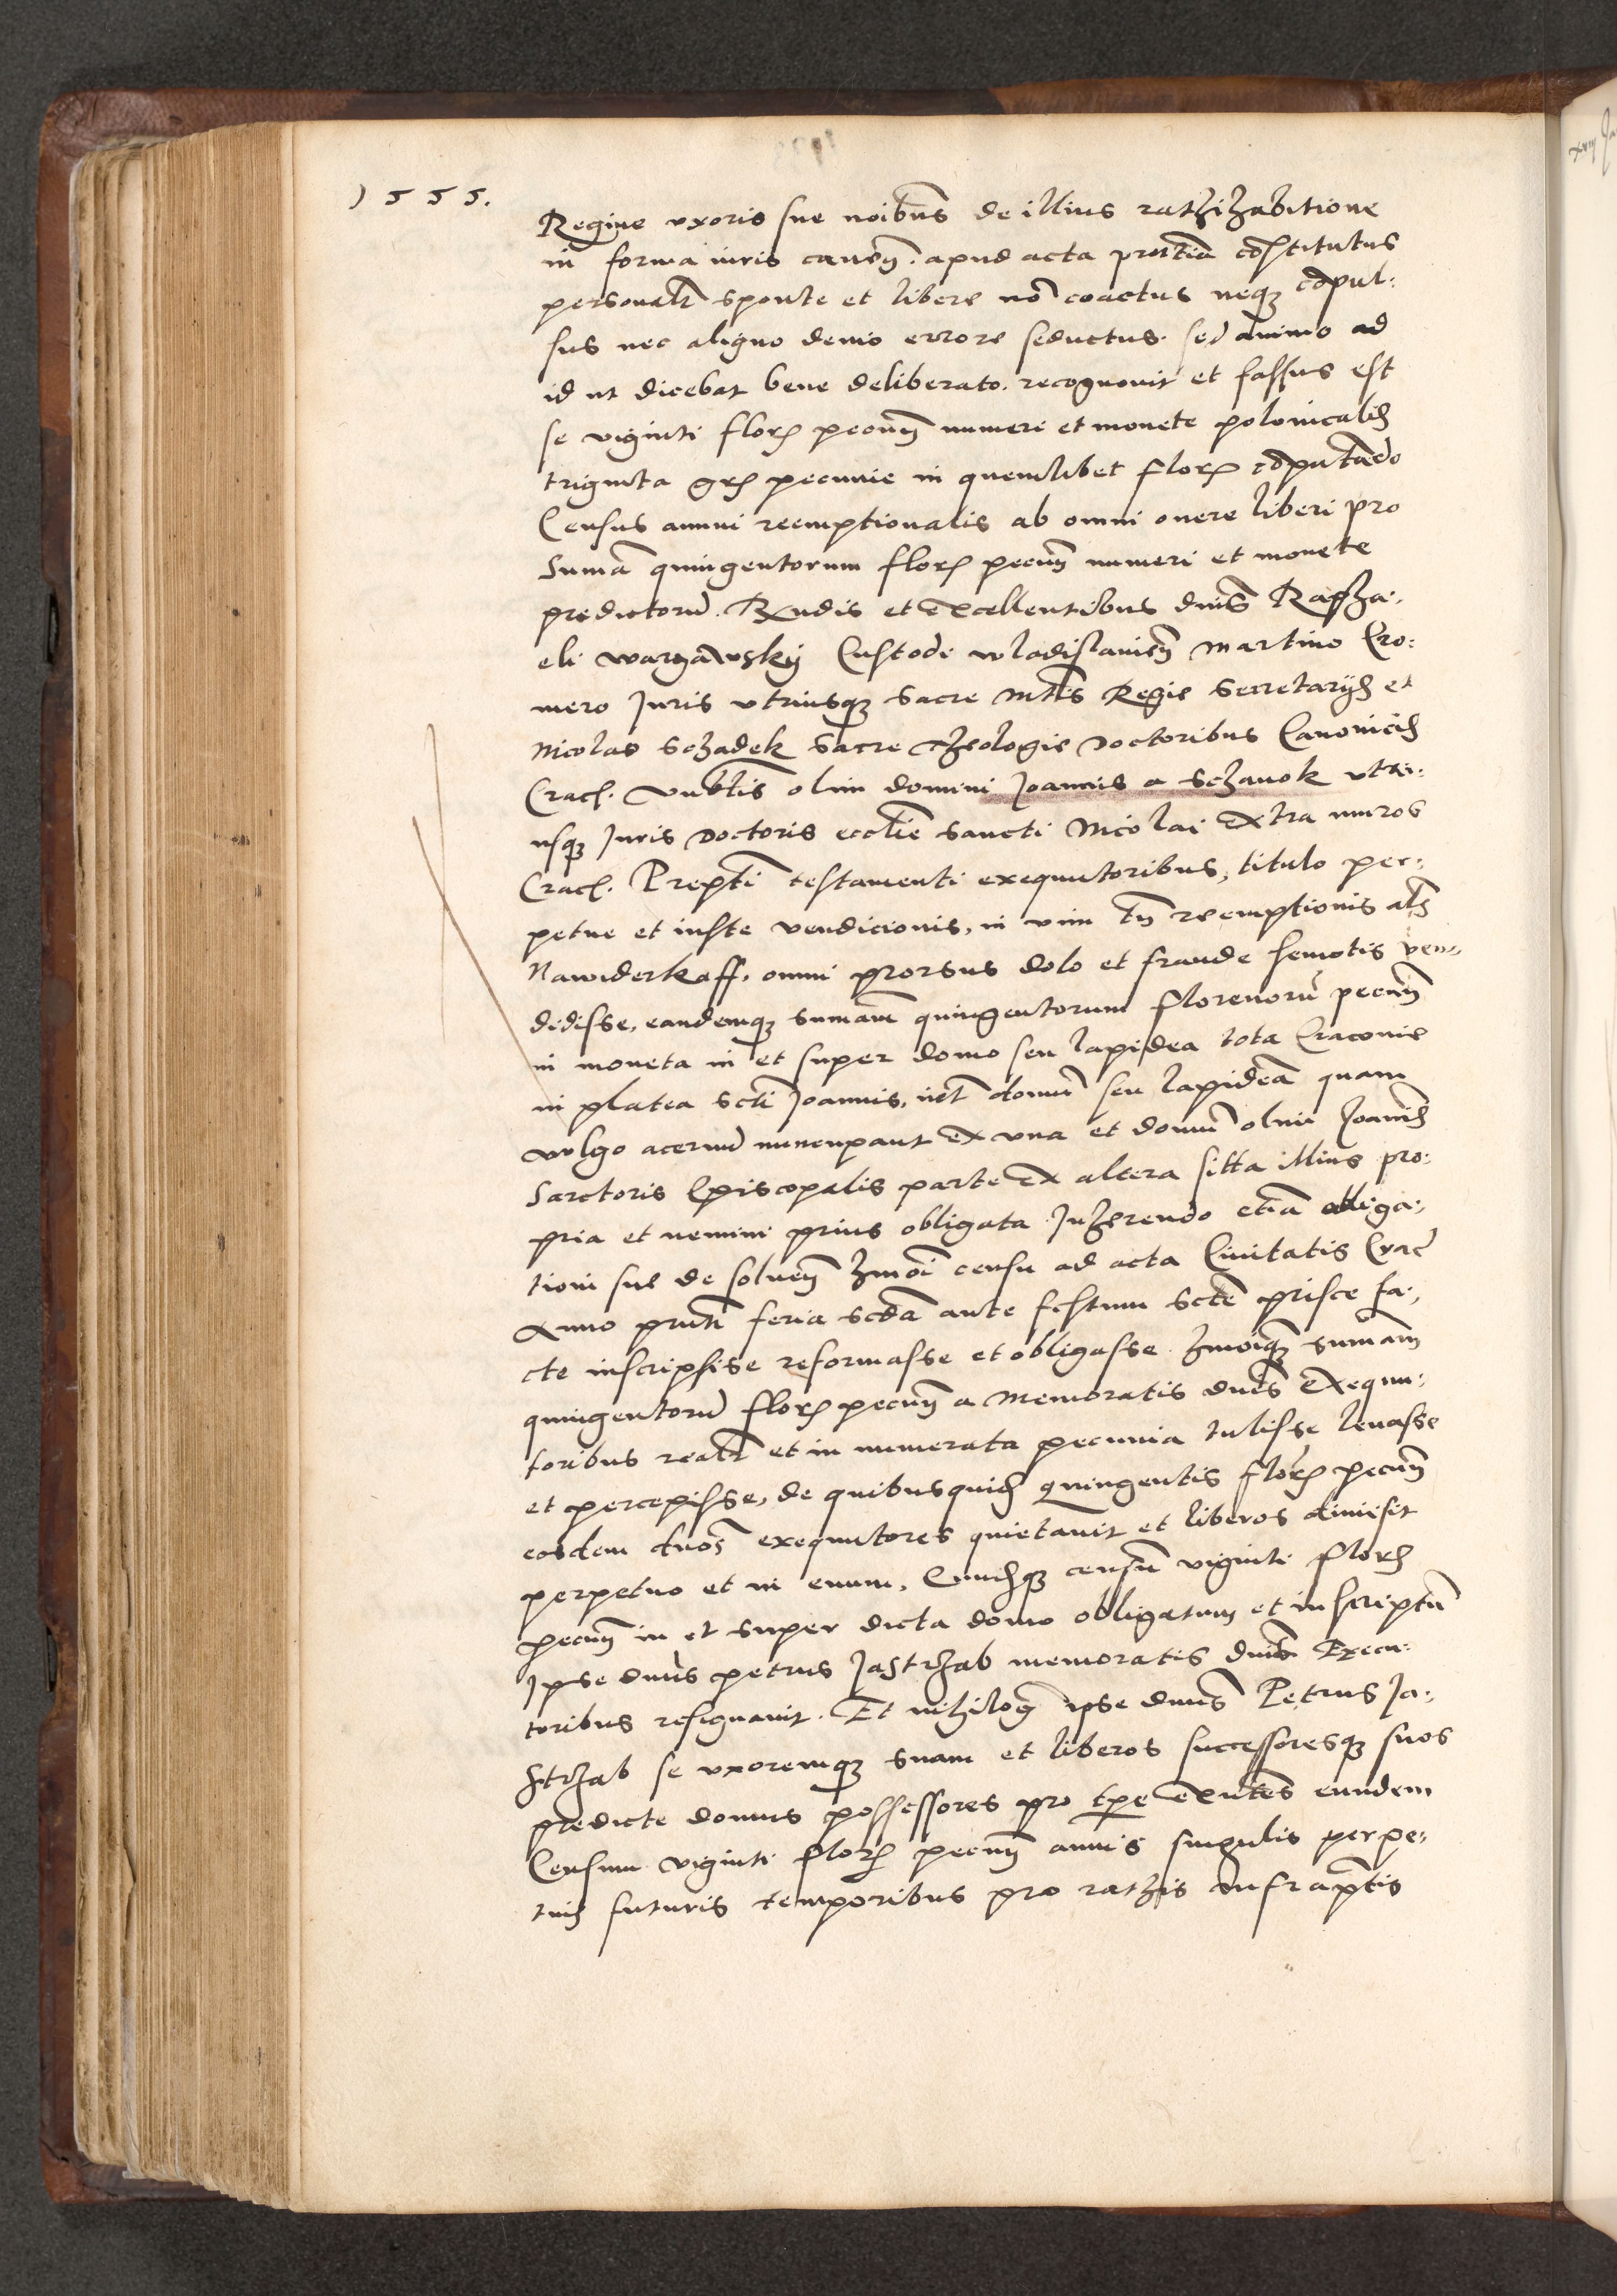 1555.
Regine uxoris sue noibus de illius rathihabitione
in forma iuris caven. apud acta prntia cōstitutus
personalr sponte et libere nō coactus neqz cōpul:
sus nec aliquo demo errore seductus. sed animo ad
id ut dicebat bene deliberato. recognovit et fassus est
se viginti flor. pecun numeri et monete polonicalis
triginta gros pecunie in quemlibet flor. cōputādo
Census annui reemptionalis ab omni onere liberi pro
Sumā quingentorum flor. pecun numeri et monete
predictorū. Rndis et Excellentibus dnis Rapha:
eli wargawsky Custode wladislavien Martino Cro:
mero Juris utriusqz Sacre Mtis Regie Secretarys et
Nicolao Schadek Sacre Theologie Doctoribus Canonicis
Crac. olim domini Joannis a Schanok utri:
usqz Juris Doctoris ecclie Sancti Nicolai Extra muros
Crac. Prepti testamenti exequutoribus, titulo per:
petue et iuste vendicionis, in vim tn reemptionis als
Nawiderkaff, omni prorsus dolo et fraude semotis ven:
didisse, eandemqz Sumam quingentorum florenorū pecun
in moneta in et super domo seu lapidea tota Cracovie
in platea Scti Joannis, int domū seu lapideā quam
vulgo acernū nuncupant Ex una et domū olim Joannis
Sarctoris Episcopalis parte Ex altera sitta illius pro:
pria et nemini prius obligata. Inherendo etiā obliga:
tioni sue de solven hmoi censu ad acta Civitatis Crac
Anno prnti feria scda ante festum Scte prisce fa:
cte inscripsisse reformasse et obligasse. hmoiqz sumam
quingentorū flor. pecun a Memoratis dnis Exequu:
toribus realr et in numerata pecunia tulisse levasse
et percepisse, de quibusquid quingentis flor. pecun
eosdem dnos exequutores quietavit et liberos dimisit
perpetuo et in evum, censū viginti flor.
pecun in et super dicta domo obligatum et inscriptū
ipse dnus petrus Jastrzab memoratis dnis Execu:
toribus resignavit. Et nihilog ipse dnus Petrus Ja:
strzab se uxoremqz suam et liberos successoresqz suos
predicte domus possessores pro tpe Exntes eundem
Censum viginti flor. pecun annis singulis perpe:
tuis futuris temporibus pro rathis infraptis